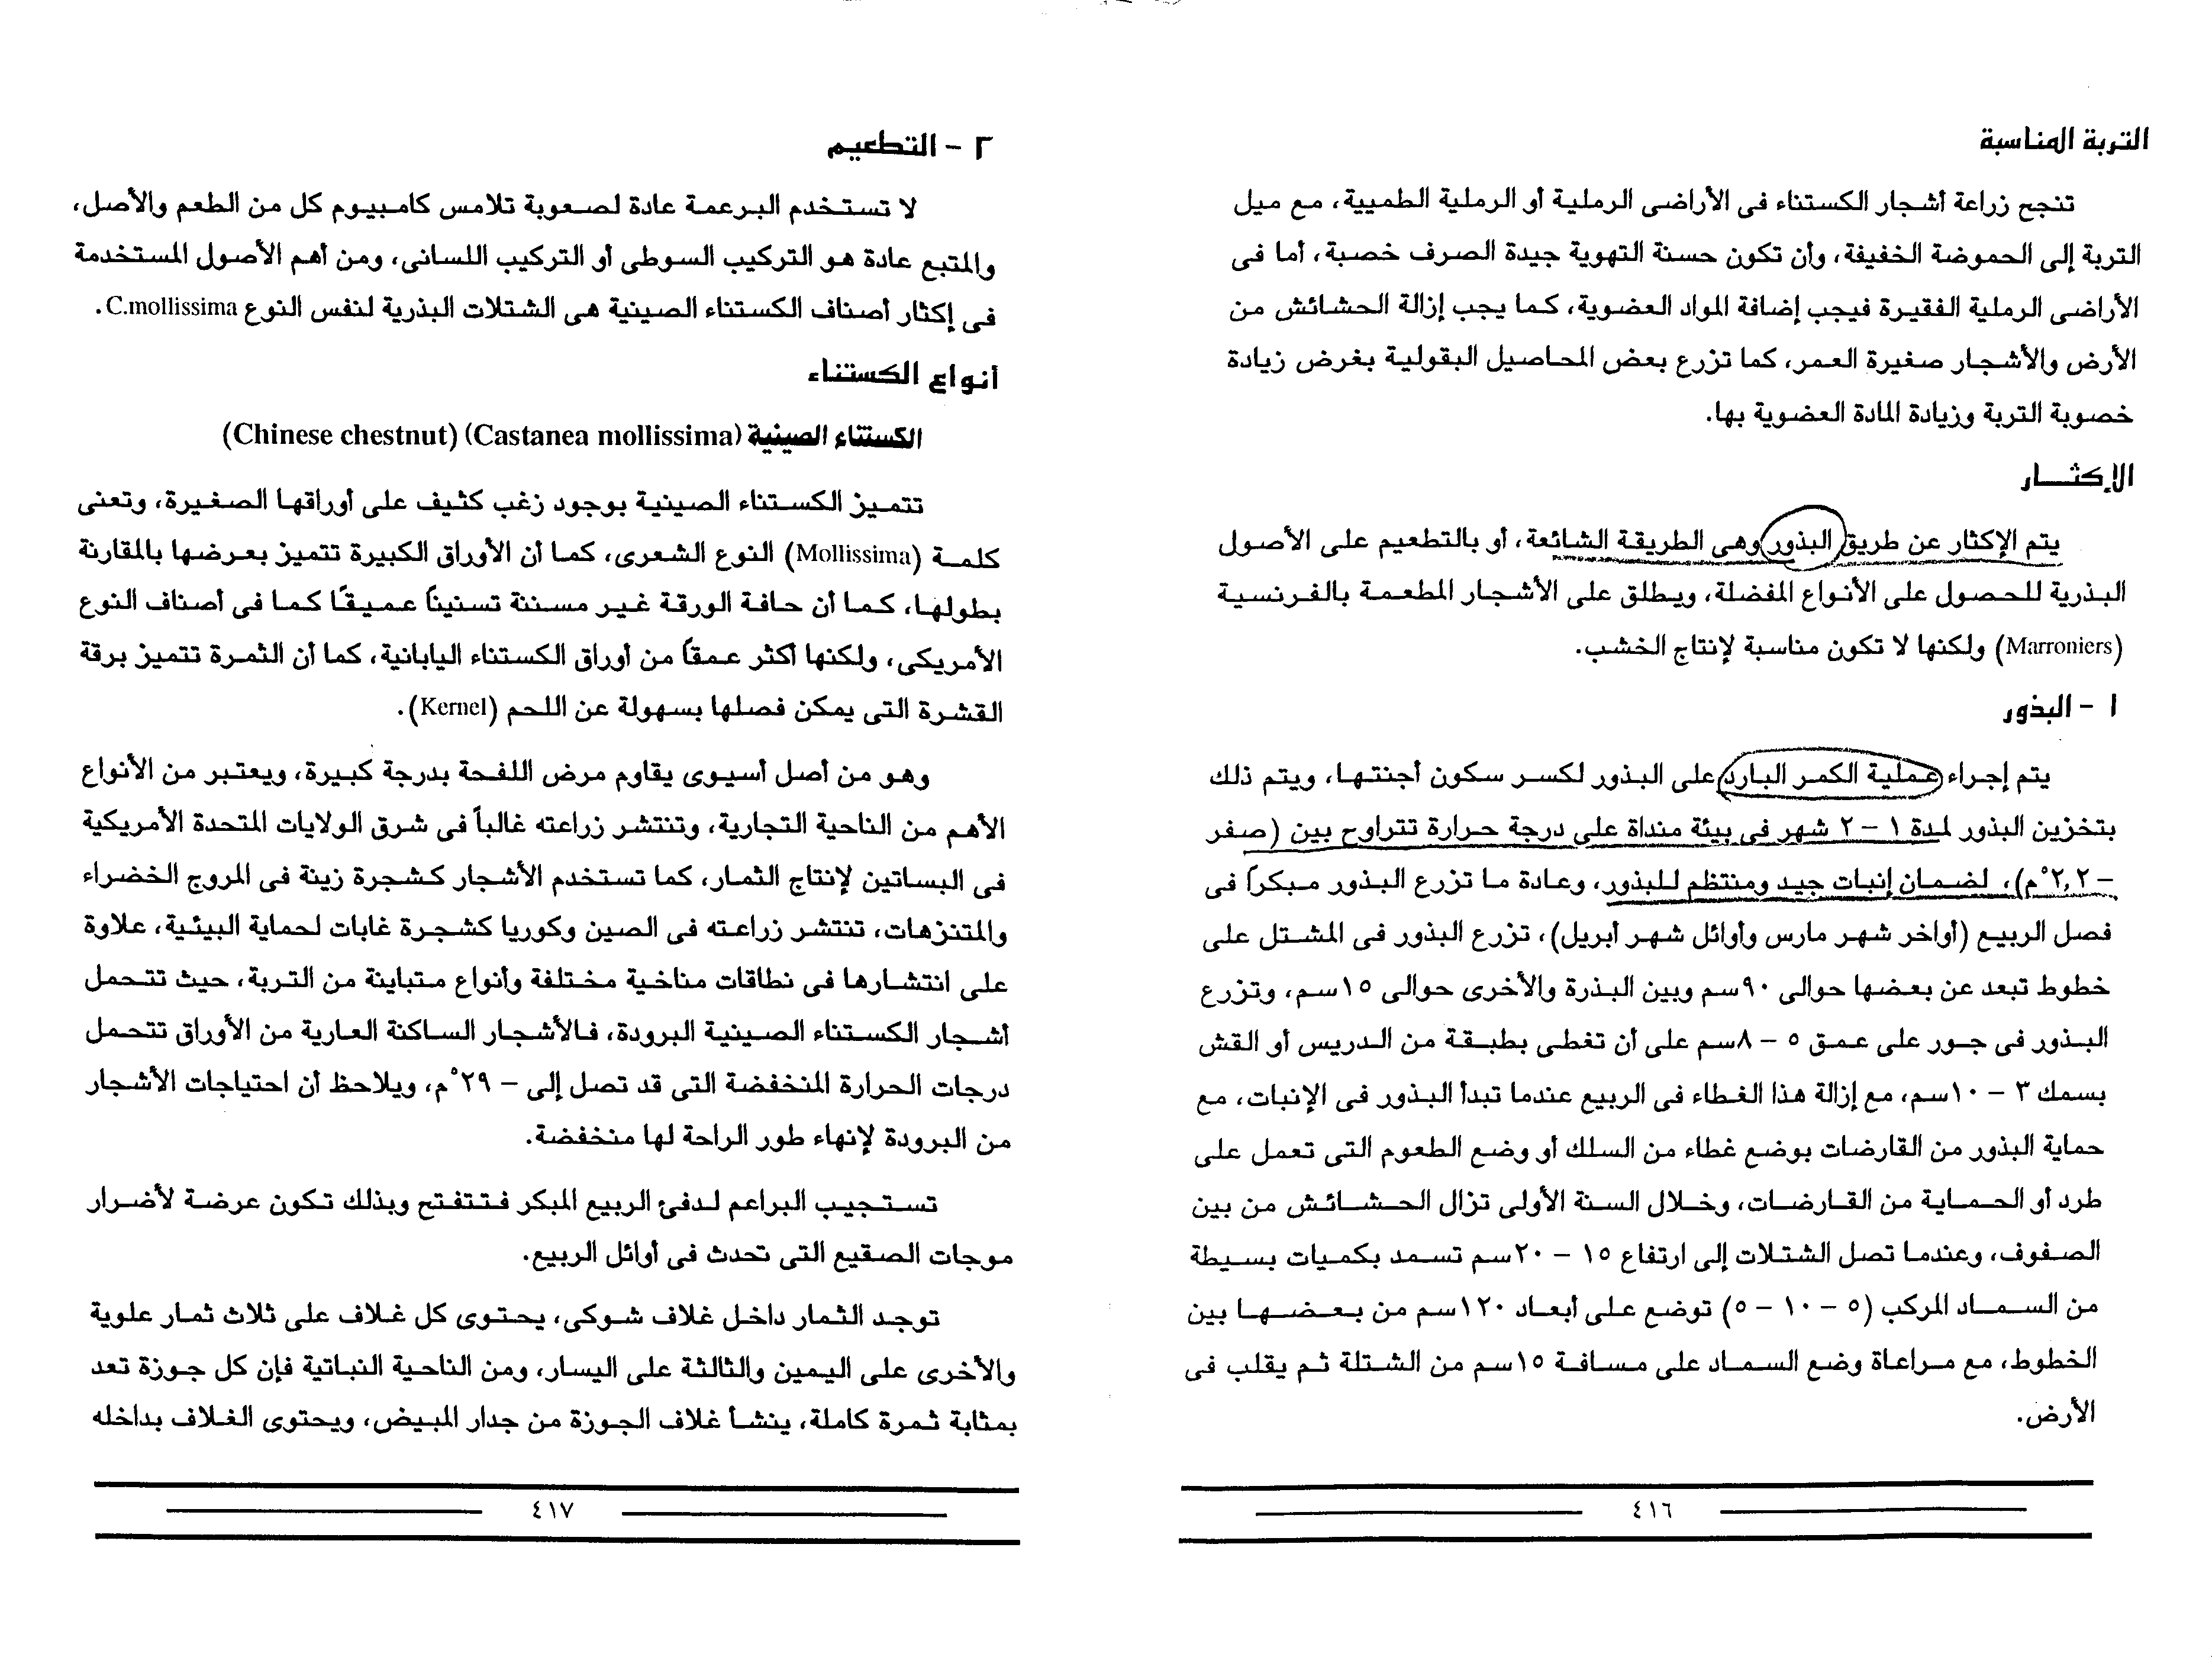 التربة المناسبة
تنجح زراعة أشجار الكستناء فى الأراضى الرملية أو الرملية الطميية، مع ميل
التربة إلى الحموضة الخفيفة، وأن تكون حسنة التهوية جيدة الصرف خصبة، أما فى
الأراضى الرملية الفقيرة فيجب إضافة المواد العضوية، كما يجب إزالة الحشائش من
الأرض والأشجار صغيرة العمر، كما تزرع بعض المحاصيل البقولية بغرض زيادة
خصوبة التربة وزيادة المادة العضوية بها.
الإكثار
يتم الإكثار عن طريق البذور وهى الطريقة الشائعة، أو بالتطعيم على الأصول
البذرية للحصول على الأنواع المفضلة، ويطلق على الأشجار المطعمة بالفرنسية
(Marroniers) ولكنها لا تكون مناسبة لإنتاج الخشب.
١ - البذور
يتم إجراء عملية الكمر البارد على البذور لكسر سكون أجنتها، ويتم ذلك
بتخزين البذور لمدة ١ – ٢ شهر فى بيئة منداة على درجة حرارة تتراوح بين (صفر
– ٢,٢°م)، لضمان إنبات جيد ومنتظم للبذور، وعادة ما تزرع البذور مبكراً فى
فصل الربيع (أواخر شهر مارس وأوائل شهر أبريل)، تزرع البذور فى المشتل على
خطوط تبعد عن بعضها حوالى ٩٠سم وبين البذرة والأخرى حوالى ١٥سم، وتزرع
البذور فى جور على عمق ٥ – ٨سم على أن تغطى بطبقة من الدريس أو القش
بسمك ٣ – ١٠سم، مع إزالة هذا الغطاء فى الربيع عندما تبدأ البذور فى الإنبات، مع
حماية البذور من القارضات بوضع غطاء من السلك أو وضع الطعوم التى تعمل على
طرد أو الحماية من القارضات، وخلال السنة الأولى تزال الحشائش من بين
الصفوف، وعندما تصل الشتلات إلى ارتفاع ١٥ – ٢٠سم تسمد بكميات بسيطة
من السماد المركب (٥ – ١٠ – ٥) توضع على أبعاد ١٢٠سم من بعضها بين
الخطوط، مع مراعاة وضع السماد على مسافة ١٥سم من الشتلة ثم يقلب فى
الأرض.
٤١٦
٢ - التطعيم
لا تستخدم البرعمة عادة لصعوبة تلامس كامبيوم كل من الطعم والأصل،
والمتبع عادة هو التركيب السوطى أو التركيب اللسانى، ومن أهم الأصول المستخدمة
فى إكثار أصناف الكستناء الصينية هى الشتلات البذرية لنفس النوع C.mollissima.
أنواع الكستناء
الكستناء الصينية (Castanea mollissima) (Chinese chestnut)
تتميز الكستناء الصينية بوجود زغب كثيف على أوراقها الصغيرة، وتعنى
كلمة (Mollissima) النوع الشعرى، كما أن الأوراق الكبيرة تتميز بعرضها بالمقارنة
بطولها، كما أن حافة الورقة غير مسننة تسنيناً عميقًا كما فى أصناف النوع
الأمريكى، ولكنها أكثر عمقاً من أوراق الكستناء اليابانية، كما أن الثمرة تتميز برقة
القشرة التى يمكن فصلها بسهولة عن اللحم (Kernel).
وهو من أصل أسيوى يقاوم مرض اللفحة بدرجة كبيرة، ويعتبر من الأنواع
الأهم من الناحية التجارية، وتنتشر زراعته غالباً فى شرق الولايات المتحدة الأمريكية
فى البساتين لإنتاج الثمار، كما تستخدم الأشجار كشجرة زينة فى المروج الخضراء
والمتنزهات، تنتشر زراعته فى الصين وكوريا كشجرة غابات لحماية البيئية، علاوة
على انتشارها فى نطاقات مناخية مختلفة وأنواع متباينة من التربة، حيث تتحمل
أشجار الكستناء الصينية البرودة، فالأشجار الساكنة العارية من الأوراق تتحمل
درجات الحرارة المنخفضة التى قد تصل إلى – ٢٩°م، ويلاحظ أن احتياجات الأشجار
من البرودة لإنهاء طور الراحة لها منخفضة.
تستجيب البراعم لدفئ الربيع المبكر فتتفتح وبذلك تكون عرضة لأضرار
موجات الصقيع التى تحدث فى أوائل الربيع.
توجد الثمار داخل غلاف شوكى، يحتوى كل غلاف على ثلاث ثمار علوية
والأخرى على اليمين والثالثة على اليسار، ومن الناحية النباتية فإن كل جوزة تعد
بمثابة ثمرة كاملة، ينشأ غلاف الجوزة من جدار المبيض، ويحتوى الغلاف بداخله
٤١٧